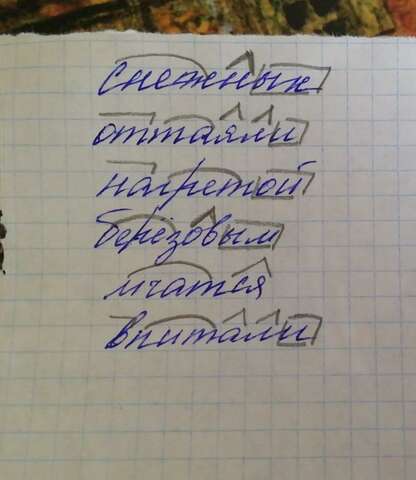 снежных
оттаяли
нагретой
берёзовым
мчатся
впитали